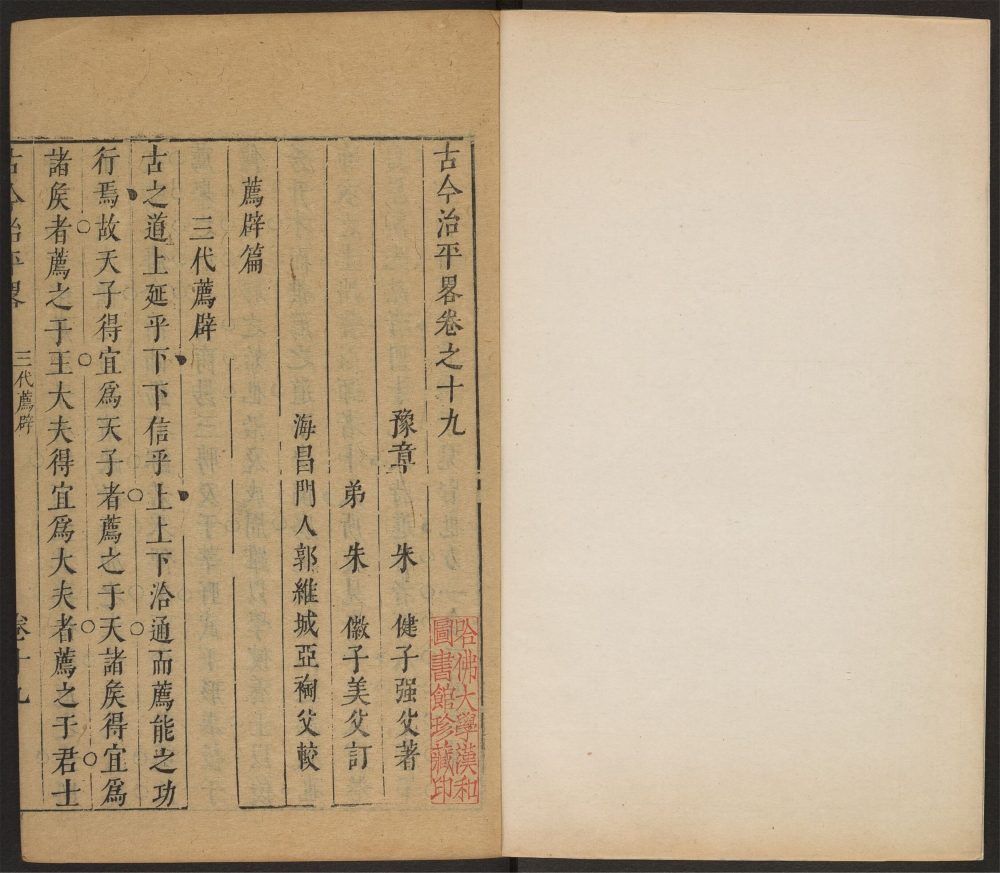 古今治平畧卷之十九
豫章 朱 健子强父著
弟 朱 徽子美父訂
海昌門人郭維城亞裪父較
薦辟篇
三代薦辟
古之道上延乎下下信乎上上下洽通而薦能之功
行焉故天子得宜爲天子者薦之于天諸矦得宜爲
諸矦者薦之于王大夫得宜爲大夫者薦之于君士
古今治平畧 三代薦辟 卷十九
哈佛大學漢和
圖書館珍藏印